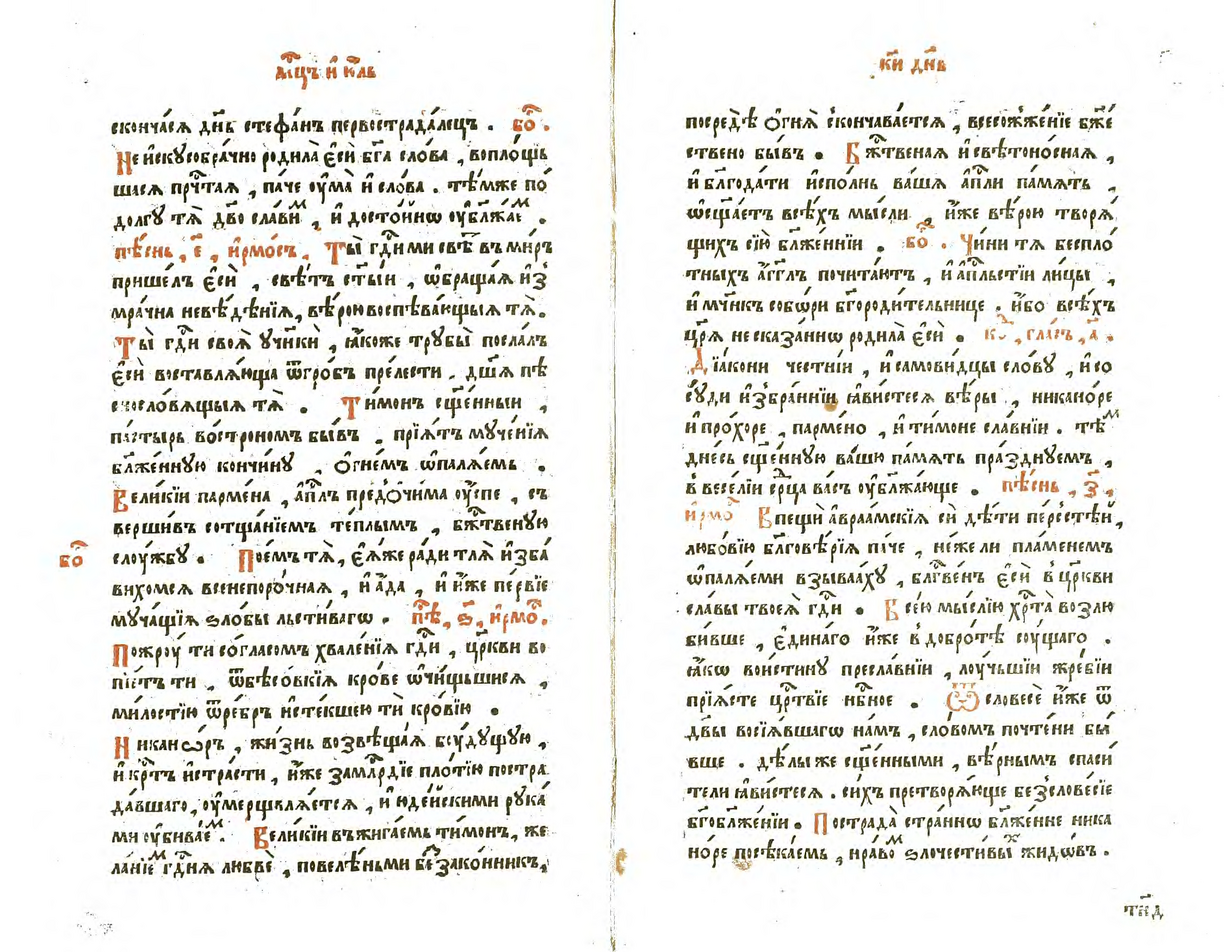 мⷭ҇цъ и҆ ꙋ҆лв
скончѧ́сѧ дн҃ь стефа́нъ первострада́лецъ . бо҃ .
Не и҆скусобра́чно родила̀ є҆сѝ бг҃а сло́ва , воплощь
шасѧ прⷱ҇таѧ , па́че ᲂу҆ма̀ и҆ сло́ва . тѣ́мже по
долгу тѧ̀ дв҃о сла́виⷨ , и҆ досто́йнѡ ᲂу҆блжа́еⷨ .
пѣ́снь , є҃ , і҆рмо́съ , Ты̀ гдⷭ҇и ми свѣ́ въ ми́ръ
пришє́лъ є҆сѝ , свѣ́тъ ст҃ы́и , ѡ҆браща́ѧ и҆з̾
мра́чна невѣ́дѣнїѧ , вѣ́рою воспѣва́ющыѧ тѧ̀ .
Ты̀ гдⷭ҇и своѧ̀ у҆чн҃кѝ , ꙗ҆́коже трубы̀ посла́лъ
є҆сѝ воставлѧ́юща ѿгро́бъ пре́лести . дш҃а пѣ
снословѧщыѧ тѧ̀ . Ти́монъ сщ҃е́нныи ,
па́стырь во́строномъ бы́въ , прїѧ́тъ муче́нїѧ
блаже́нную кончи́ну , ѻ҆гне́мъ ѡ҆палѧ́емь .
Вели́кїи парме́на , а҆пⷭ҇лъ предѻ҆чи́ма ᲂу҆́спе , съ
верши́въ сотща́нїемъ те́плымъ , бжⷭ҇твеную
слоу́жбу . Пое́мъ тѧ̀ , є҆ѧ́же ра́ди тлѧ̀ и҆зба́
бо҃
вихомсѧ всенепоро́чнаѧ , и҆ а҆́да , и҆ и҆́же пе́рвїе
муча́щїѧ ѕло́бы льсти́вагѡ . пѣ́ , ѕ҃ , і҆рмоⷭ҇ .
Пожроу́ ти со́гласомъ хвале́нїѧ гдⷭ҇и , цр҃кви во
пїе́тъ ти , ѿбѣсо́вкїѧ кро́ве ѡ҆чи́щьшисѧ ,
ми́лостїю ѿре́бръ и҆сте́кшею тѝ кро́вїю .
Никанѡ́ръ , жи́знь возвѣща́ѧ боудущую ,
и҆ крⷭ҇тъ и҆ стра́сти , и҆́же замлⷭ҇рдїе пло́тїю постра
да́вшаго , ᲂу҆мерщвлѧ́етсѧ , и҆ и҆де́йскими рука́
ми ᲂу҆бива́еⷨ . Вели́кїи въжига́емь ти́монъ , же
ла́нїеⷨ гдⷭ҇нѧ любвѐ , повелѣ́ньми беззако́нникъ ,
ки҃ дн҃в
посредѣ̀ ѻ҆гнѧ̀ скончава́етсѧ , всесожже́нїе бж҃е
ствено бы́въ . Бжⷭ҇твенаѧ и҆ свѣтоно́снаѧ ,
и҆ блг҃ода́ти и҆спо́лнь ва́шѧ а҆пⷭ҇ли па́мѧть ,
ѡ҆сщ҃а́етъ всѣ́хъ мы́сли , и҆́же вѣ́рою творѧ́
щихъ сїю̀ блаже́ннїи . бо҃ . Чи́ни тѧ беспло́
тныхъ а҆́гг҃лъ почита́ютъ , и҆ а҆пⷭ҇льстїи ли́цы ,
и҆ мч҃нкъ собѡ́ри бг҃ороди́тельнице . и҆́бо всѣ́хъ
цр҃ѧ̀ не ска́заннѡ родила̀ є҆сѝ . коⷣ , гла́съ , а҃ .
Дїа́кони че́стнїи , и҆ самови́дцы сло́ву , и҆ со
су́ди и҆збра́ннїи ꙗ҆ви́стесѧ вѣ́ры , никано́ре
и҆ про́хоре , парме́но , и҆ ти́моне сла́внїи . тѣⷨ
дне́сь сщ҃е́нную ва́шю па́мѧть пра́зднуемъ ,
в весе́лїи срⷣца ва́съ ᲂу҆бл҃жа́юще . пѣ́снь , з҃ ,
і҆рмоⷭ҇ Впещѝ а҆враа́мскїѧ сѝ дѣ́ти пе́рсстѣи ,
любо́вїю блг҃овѣ́рїѧ па́че , не́жели пла́менемъ
ѡ҆палѧ́еми взыва́аху , блгⷭ҇ве́нъ є҆сѝ в цр҃кви
сла́вы твоеѧ̀ гдⷭ҇и . Все́ю мы́слїю хрⷭ҇та̀ возлю
би́вше , є҆ди́наго и҆́же в добротѣ̀ соу́щаго .
ꙗ҆́кѡ вои́стину пресла́внїи , лоу́чьшїи жре́бїи
прїѧ́сте црⷭ҇твїе нбⷭ҇ное . Ѽ словесѐ и҆́же ѿ
дв҃ы восїѧ́вшагѡ на́мъ , сло́вомъ почте́ни бы́
вще . дѣ́лы же сщ҃е́нными , вѣ́рнымъ спаси́
тели ꙗ҆ви́стесѧ . си́хъ претворѧ́юще безслове́сїе
бг҃облаже́нїи . Пострада̀ стра́ннѡ блаже́нне ника
но́ре посѣка́емь , нра́воⷨ ѕлочести́выⷯ жидѡ́въ .
тн҃д